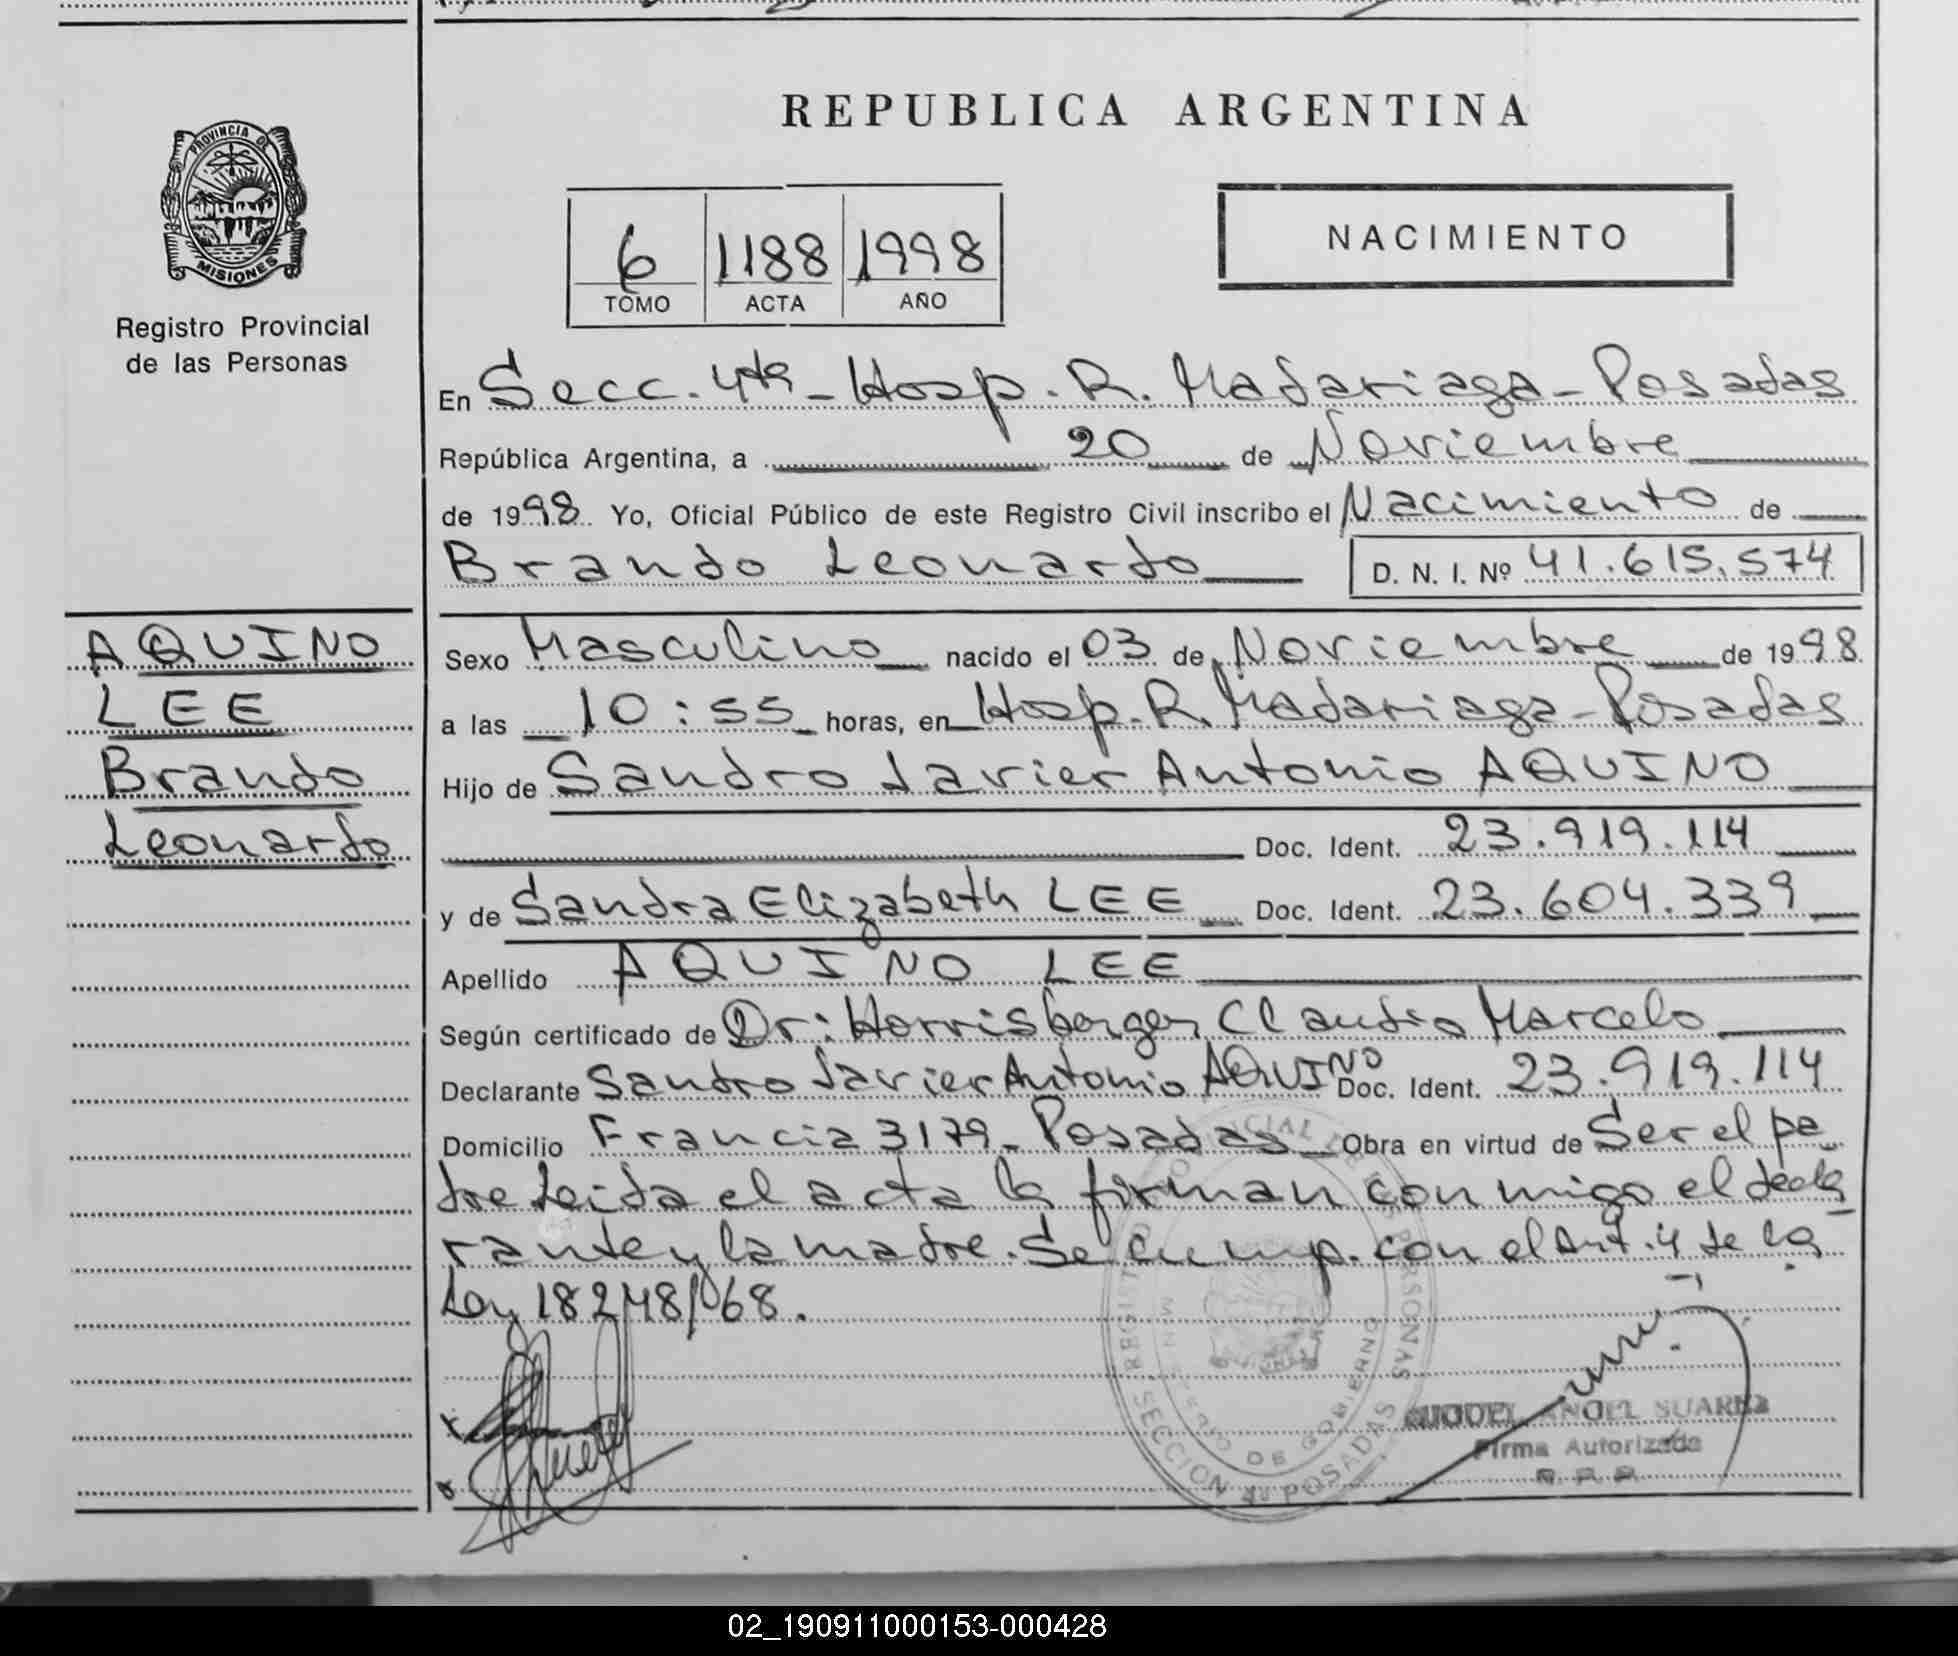 REPUBLICA ARGENTINA
PROVINCIA DE
MISIONES
Registro Provincial
de las Personas
6 1188 1998
TOMO ACTA AÑO
NACIMIENTO
En Secc. 4ta - Hosp. R. Madariaga - Posadas
República Argentina, a 20 de Noviembre
de 1998 Yo, Oficial Público de este Registro Civil inscribo el Nacimiento de
Brando Leonardo D. N. I. Nº 41.615.574
AQUINO
LEE
Brando
Leonardo
Sexo Masculino nacido el 03 de Noviembre de 1998
a las 10:55 horas, en Hosp. R. Madariaga - Posadas
Hijo de Sandro Javier Antonio AQUINO
Doc. Ident. 23.919.114
y de Sandra Elizabeth LEE Doc. Ident. 23.604.339
Apellido AQUINO LEE
Según certificado de Dr: Horrisberger Claudio Marcelo
Declarante Sandro Javier Antonio AQUINO Doc. Ident. 23.919.114
Domicilio Francia 3179 - Posadas Obra en virtud de Ser el pa
dre Leida el acta la firman conmigo el decla
rante y la madre. Se cump. con el Art. 4 de la
Ley 18248/068.
REGISTRO PERSONAS
DE GOBIERNO
SECCION 4ta POSADAS
ANGEL SUAREZ
Firma Autorizada
R. P. P.
02_190911000153-000428